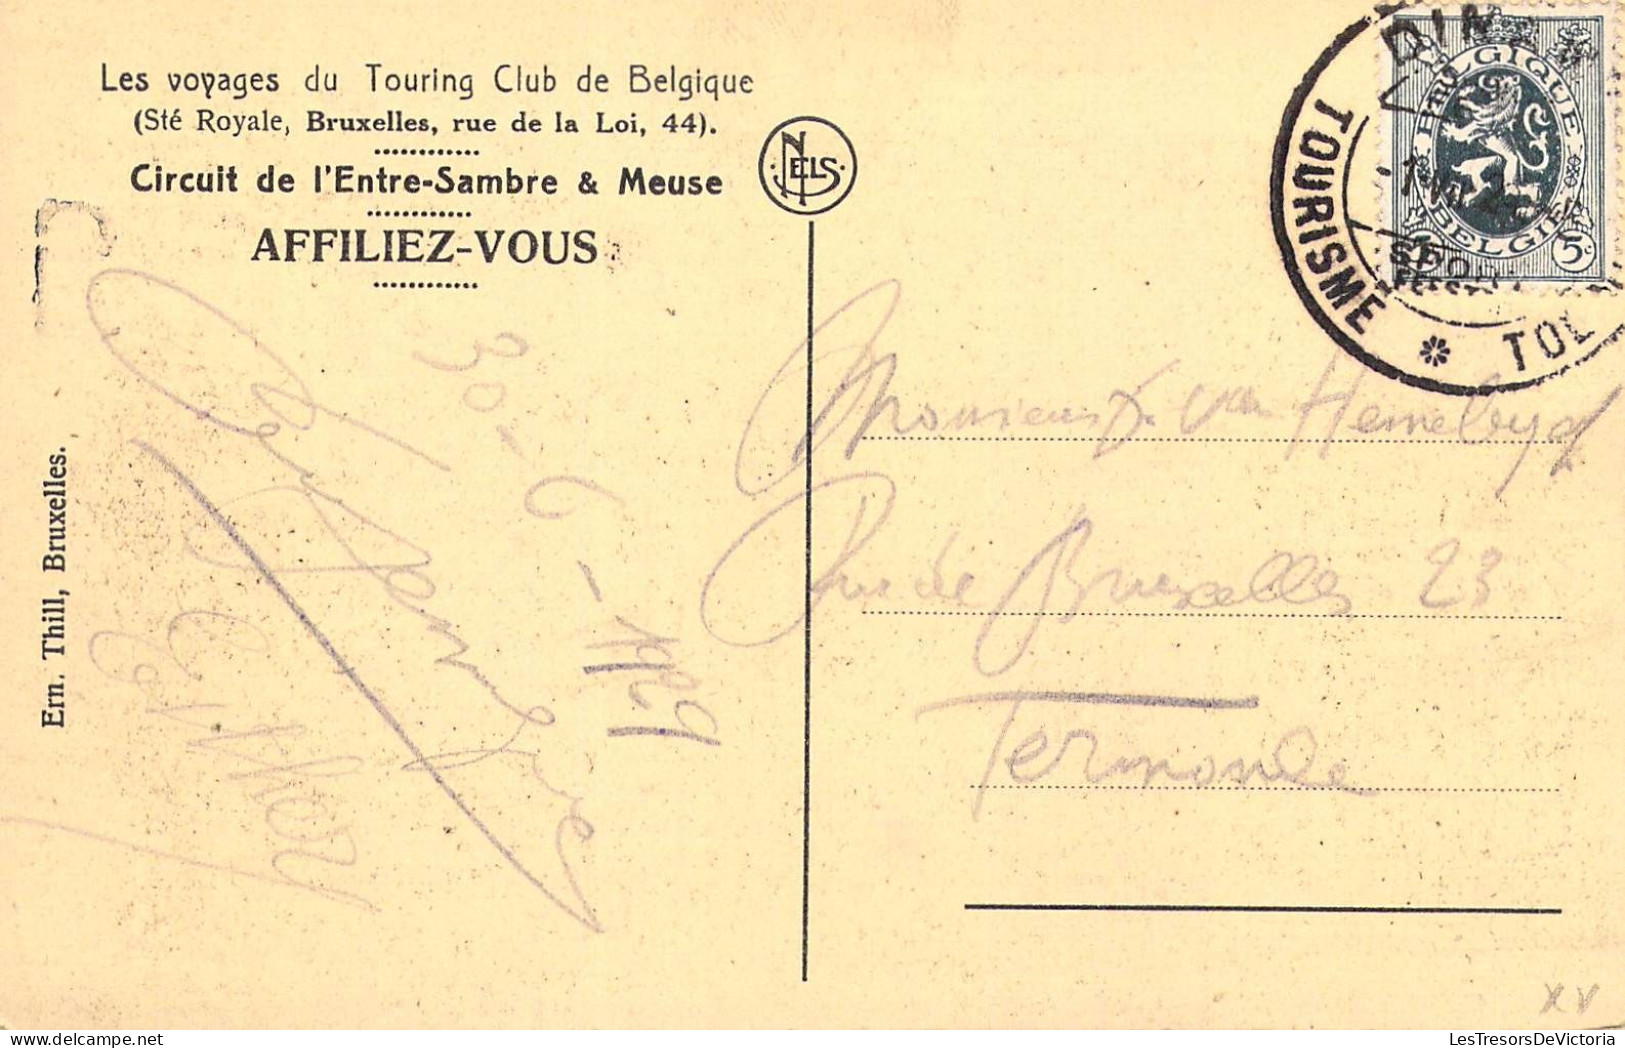 Les voyages du Touring Club de Belgique
(Sté Royale, Bruxelles, rue de la Loi, 44).
Circuit de l'Entre-Sambre & Meuse
AFFILIEZ-VOUS
NELS
Ern. Thill, Bruxelles.
30-6-1929
TOURISME
BELGIQUE
BELGIË
5c
Monsieur van
Rue de Bruxelles 23
Termonde
XV
LesTresorsDeVictoria